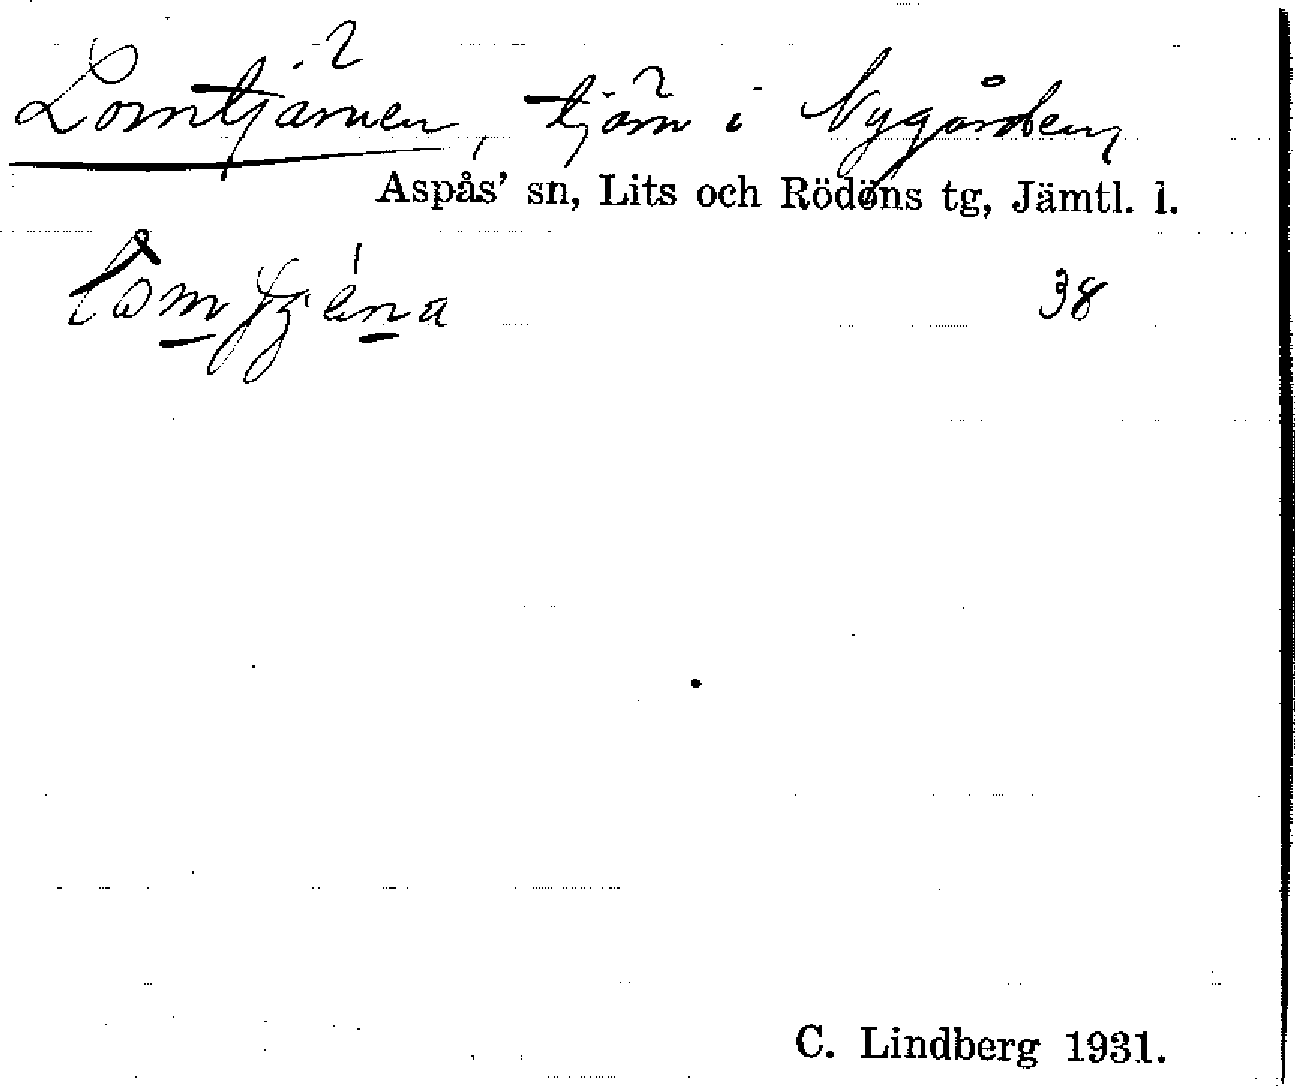 Lomtjärnen, tjärn i Nygården,
Aspås' sn, Lits och Rödöns tg, Jämtl. l.
38
C. Lindberg 1931.